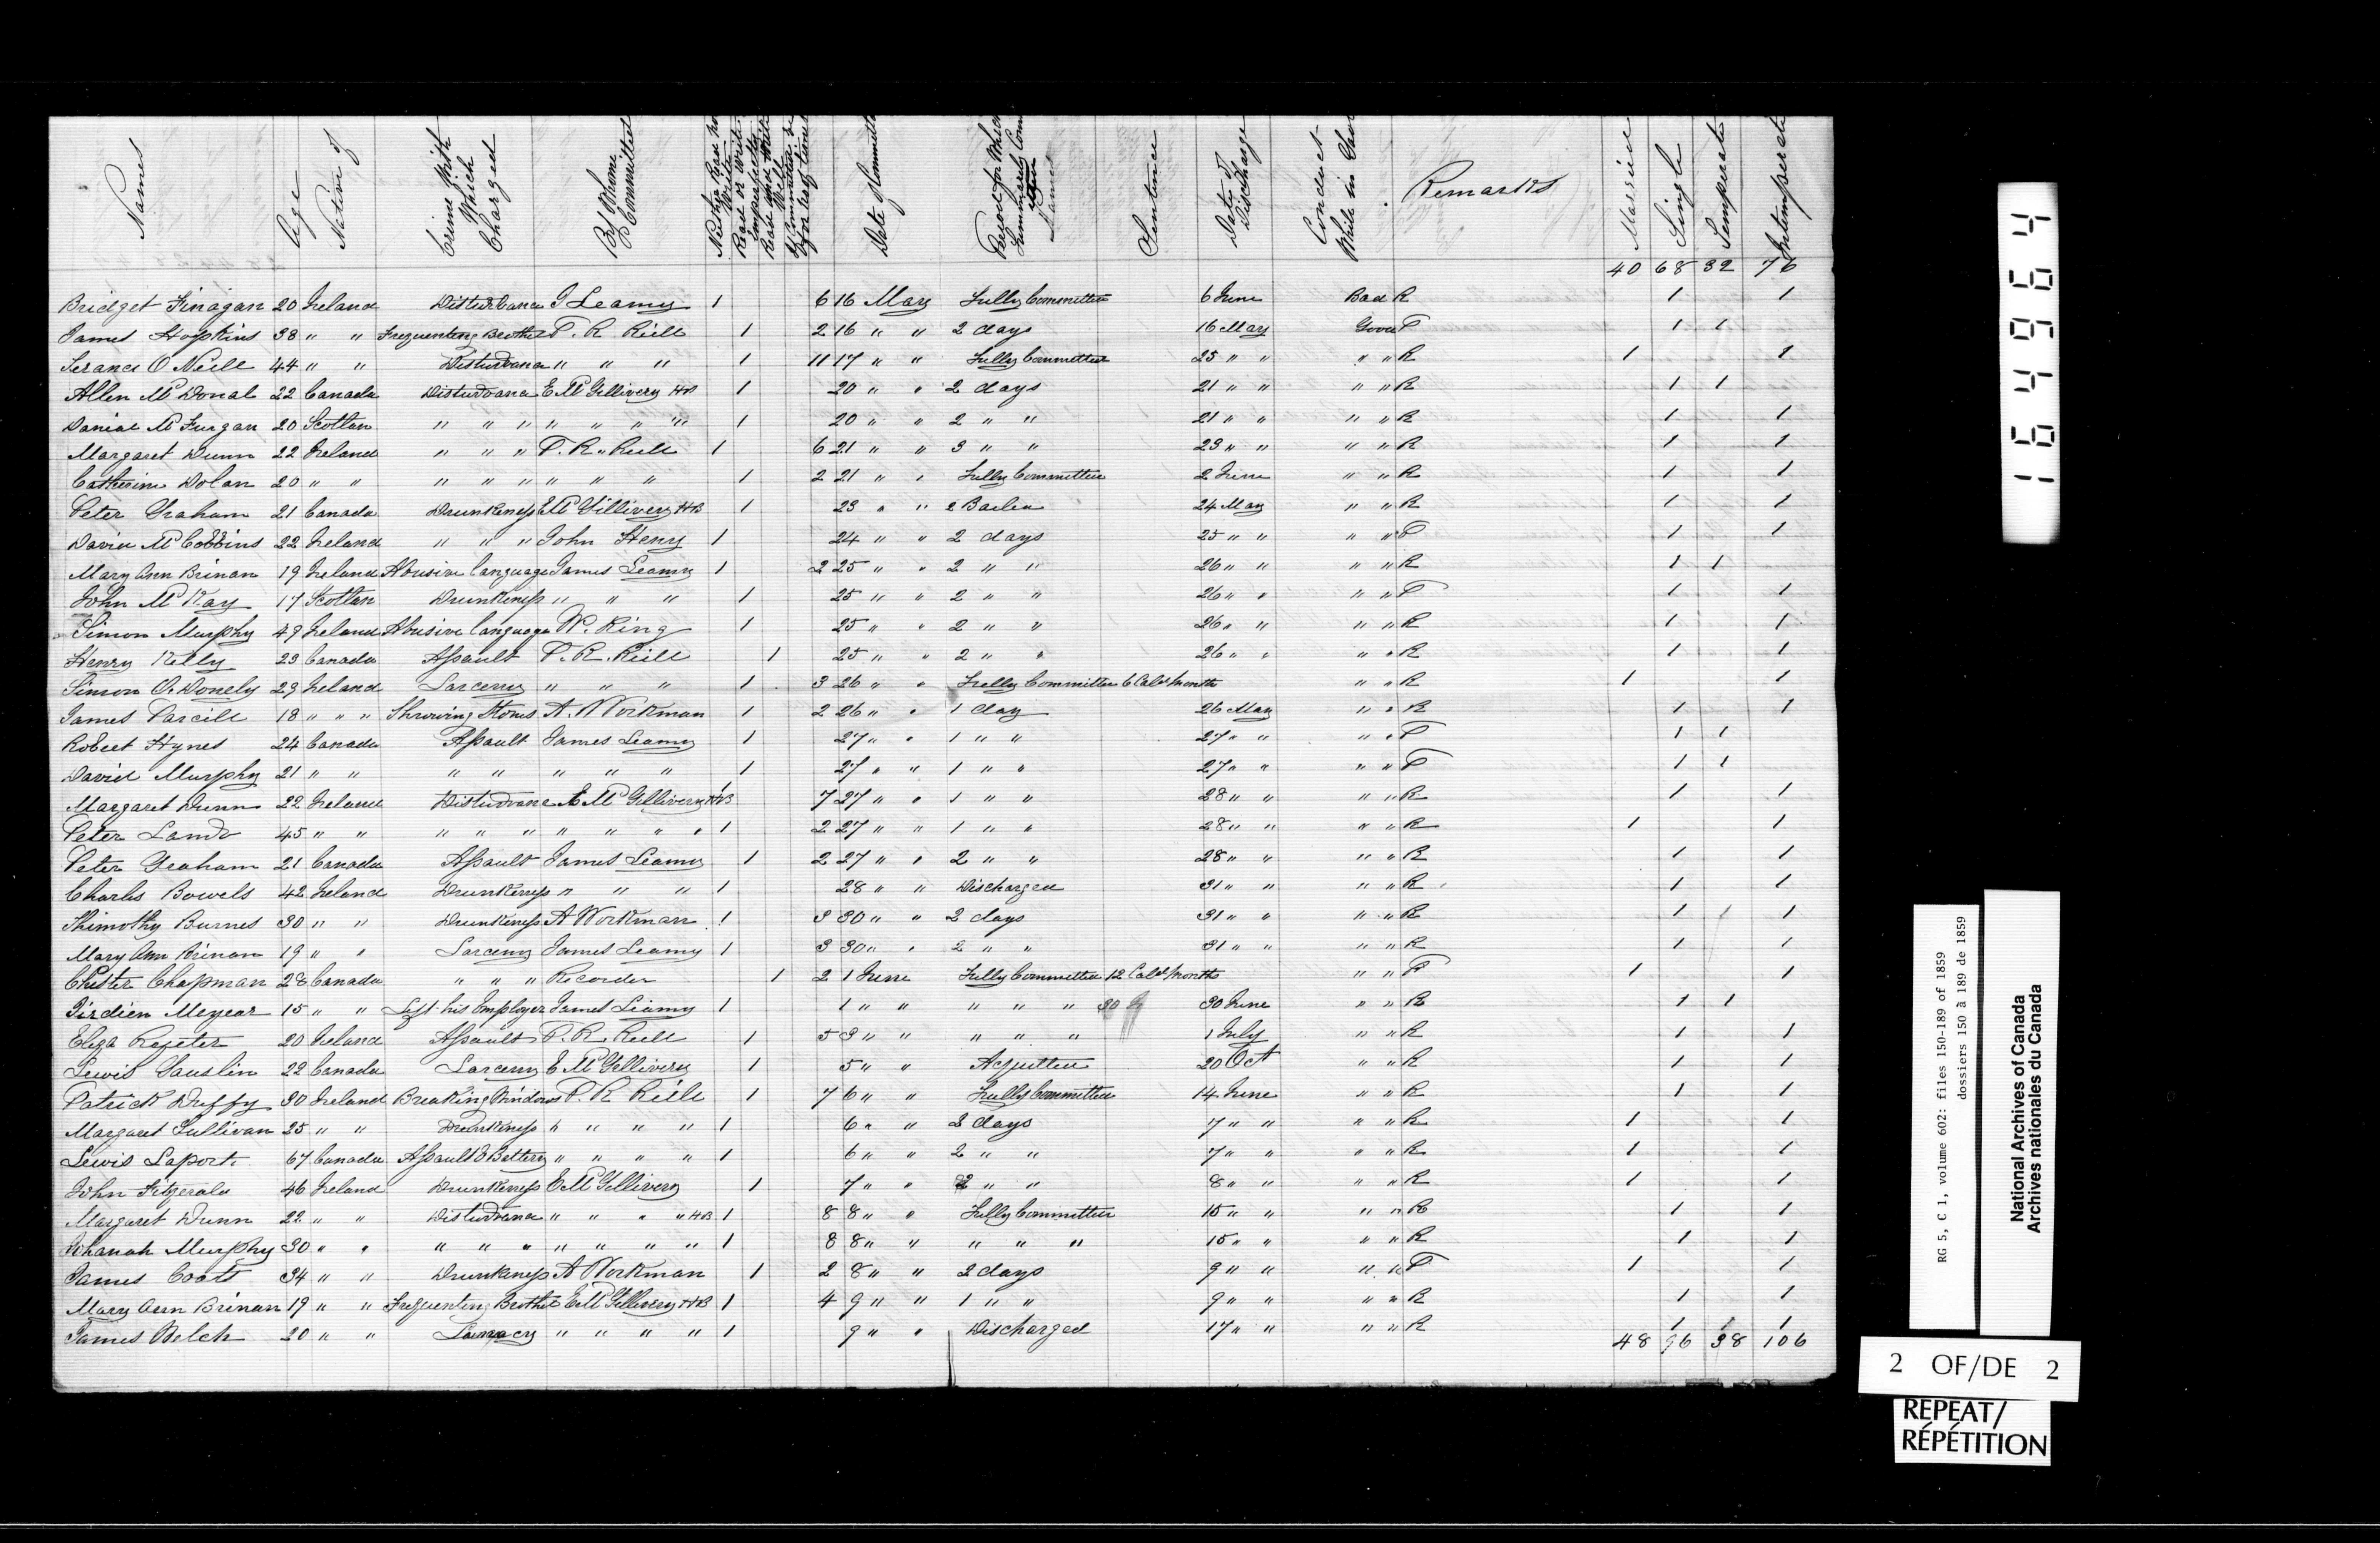 Names Age Native of Crime With Which Charged By Whome Committed Neither Read nor Write Read or write imperfectly Read and Write Well Date of Committal Period for Which Summararily Sentence Date of Discharge Conduct While in Remarks Married Single Temperate Intemperate
40 68 32 76
Bridget Finagan 20 Ireland Disturbance J Leamy 1 6 16 May Fully Committed 6 June Bad R 1 1
James Hopkins 38 " " Frequenting Brothel P. R Rielle 1 2 16 " " 2 days 16 May Good P 1 1
Terance O Neill 44 " " Disturbance " " " 1 11 17 " " Fully Committed 25 " " " " R 1 1
Allen Mc Donal 22 Canada Disturbance E Mc Gillivery HB 1 20 " " 2 days 21 " " " " R 1 1
Danial Mc Furgan 20 Scotlan " " " " " " " 1 20 " " 2 " " 21 " " " " R 1 1
Margaret Dunn 22 Ireland " " " P. R. Rielle 1 6 21 " " 3 " " 23 " " " " R 1 1
Catherine Dolan 20 " " " " " " " " 1 2 21 " " Fully Committed 2 June " " R 1 1
Peter Graham 21 Canada Drunkeness E Mc Gillivery HB 1 23 " " 2 Bailed 24 May " " R 1 1
David Mc Cobbins 22 Ireland " " " John Henry 1 24 " " 2 days 25 " " " " P 1 1
Mary Ann Brinan 19 Ireland Abusive language James Leamy 1 2 25 " " 2 " " 26 " " " " R 1 1
John Mc Kay 17 Scotlan Drunkeness " " " 1 25 " " 2 " " 26 " " " " P 1 1
Simon Murphy 49 Ireland Abusive language W. King 1 25 " " 2 " " 26 " " " " R 1 1
Henry Kelly 23 Canada Assault P. R. Rielle 1 25 " " 2 " " 26 " " " " R 1 1
Simon O. Donely 29 Ireland Larceny " " " 1 3 26 " " Fully Committed 6 Caldr Months " " R 1 1
James Parcill 18 " " " Throwing Stones A. Workman 1 2 26 " " 1 day 26 May " " R 1 1
Robert Hynes 24 Canada Assault James Leamy 1 27 " " 1 " " 27 " " " " P 1 1
David Murphy 21 " " " " " " " 1 27 " " 1 " " 27 " " " " P 1 1
Margaret Dunn 22 Ireland Disturbance E Mc Gillivery HB 1 7 27 " " 1 " " 28 " " " " R 1 1
Peter Land 45 " " " " " " " " " 1 2 27 " " 1 " " 28 " " " " R 1 1
Peter Graham 21 Canada Assault James Leamy 1 2 27 " " 2 " " 28 " " " " R 1 1
Charles Bowels 42 Ireland Drunkeness " " " 1 28 " " Discharged 31 " " " " R 1 1
Thimothy Burnes 30 " " Drunkeness A Workman 1 3 30 " " 2 days 31 " " " " R 1 1
Mary Ann Brinan 19 " " Larceny James Leamy 1 3 30 " " 2 " " 31 " " " " R 1 1
Chester Chapman 28 Canada " " " Recorder 1 2 1 June Fully Committed 12 Caldr Months " " P 1 1
Pirdien Meyear 15 " " Left his Employer James Leamy 1 1 " " " " " 30 30 June " " R 1 1
Eliza Regeter 20 Ireland Assault P. R. Rielle 1 5 3 " " " " " 1 July " " R 1 1
Lewis Gauslin 22 Canada Larceny E Mc Gillivery 1 5 " " Acquitted 20 Oct " " R 1 1
Patrick Duffy 30 Ireland Breaking Windows P. R Rielle 1 7 6 " " Fully Committed 14 June " " R 1 1
Margaret Sullivan 25 " " Drunkeness " " " " 1 6 " " 2 days 7 " " " " R 1 1
Lewis Laport 67 Canada Assault & Battery " " " " 1 6 " " 2 " " 7 " " " " R 1 1
John Fitzgerald 46 Ireland Drunkeness E Mc Gillivery 1 7 " " 2 " " 8 " " " " R 1 1
Margaret Dunn 22 " " Disturbance " " " " HB 1 8 8 " " Fully Committed 15 " " " " R 1 1
Johanah Murphy 30 " " " " " " " " " 1 8 8 " " " " " 15 " " " " R 1 1
James Coats 34 " " Drunkeness A Workman 1 2 8 " " 2 days 9 " " " " P 1 1
Mary Ann Brinan 19 " " Frequenting Brothel E Mc Gillivery HB 1 4 9 " " 1 " " 9 " " " " R 1 1
James Welch 20 " " Lunacy " " " " 1 9 " " Discharged 17 " " " " R 1 1 1
48 96 38 106
164964
RG 5, C 1, volume 602: files 150-189 of 1859
dossiers 150 à 189 de 1859
National Archives of Canada
Archives nationales du Canada
2 OF/DE 2
REPEAT/
RÉPÉTITION